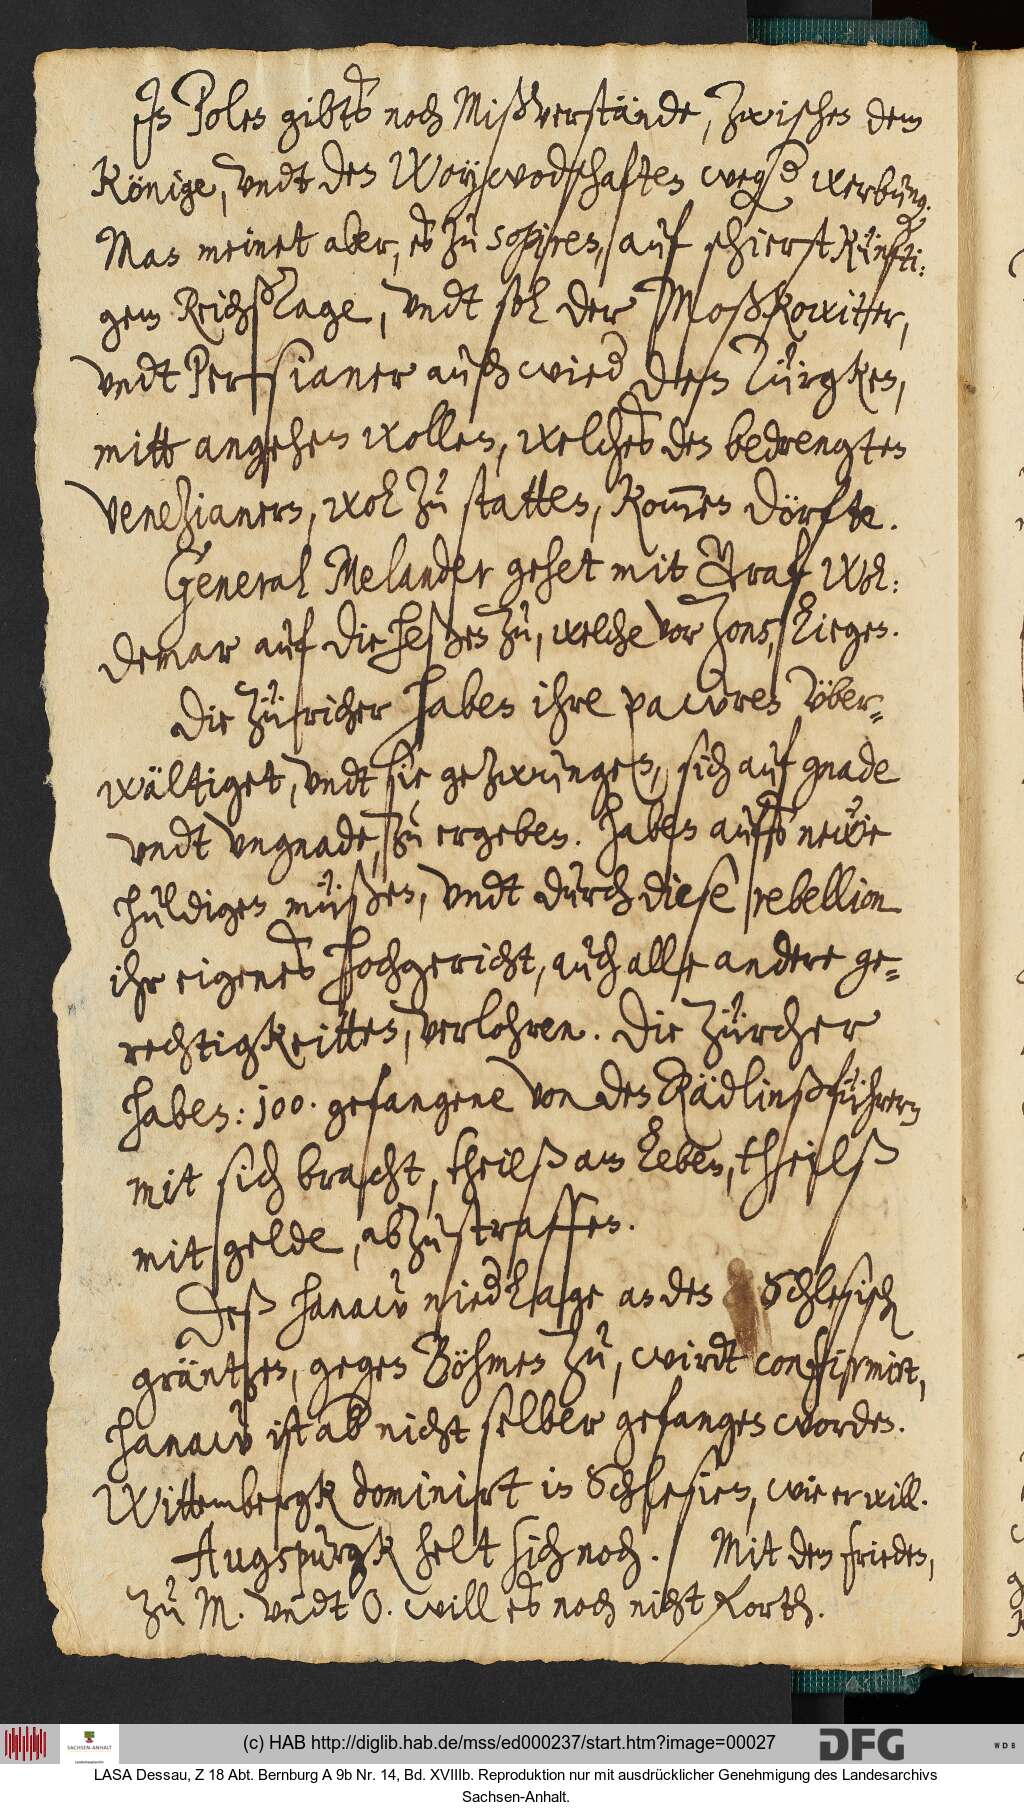 In Polen gibts noch Mißverstände, zwischen dem
Könige, vndt den Woywodschaften wegen werbung.
Man meinet aber, es zu sopiren, auf schierst künfti:
gem Reichstage, vndt sol der Moßkowitter,
vndt Persianer auch wieder den Türgken,
mitt angehen wollen, welches den bedrengten
Venezianern, wol zu statten, kommen dörfte.
General Melander gehet mit Graf Wol:
demar auf die Heßen zu, welche vor Zons, liegen.
Die Züricher haben ihre pawren vber-
wältiget, vndt sie gezwungen, sich auf gnade
vndt vngnade, zu ergeben. Haben aufs newe
huldigen müßen, vndt durch diese rebellion
ihr eigenes Hochgericht, auch alle andere ge-
rechtigkeitten, verlohren. Die Zürcher
haben: 100. gefangene von den Rädlinßführern
mit sich bracht, theilß am leben, theilß
mit gelde, abzustraffen.
Deß Hanaw niederlage an den Schlesischen
gräntzen, gegen Böhmen zu, wirdt confirmirt,
Hanaw ist aber nicht selber gefangen worden.
Wittembergk dominirt in Schlesien, wie er will.
Augspurgk helt sich noch. Mit dem frieden,
zu M. vndt O. will es noch nicht forth.
(c) HAB http://diglib.hab.de/mss/ed000237/start.htm?image=00027
SACHSEN-ANHALT
DFG
WDB
LASA Dessau, Z 18 Abt. Bernburg A 9b Nr. 14, Bd. XVIIIb. Reproduktion nur mit ausdrücklicher Genehmigung des Landesarchivs
Sachsen-Anhalt.